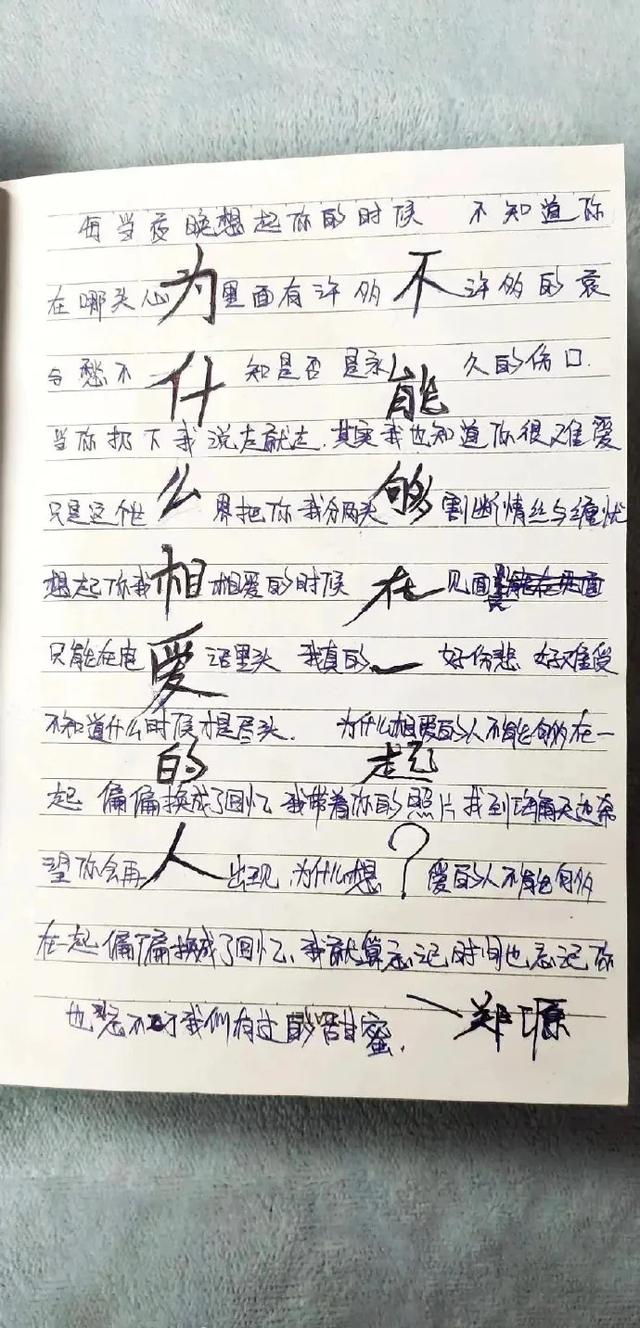 每当夜晚想起你的时候 不知道你
在哪头心里面有许多 许多的哀
与愁不 知是否 是永 久的伤口.
当你扔下我说走就走,其实我也知道你很难爱
只是这个世 界把你我分两头 割断情丝与缠忧
想起你我 相爱的时候 见面
只能在电 话里头 我真的 好伤悲 好难受
不知道什么时候才是尽头. 为什么相爱的人不能够在一
起 偏偏换成了回忆 我带着你的照片找到海角天边希
望你会再 出现,为什么想 爱的人不能够
在一起 偏偏换成了回忆,我就算忘记时间也忘记你
也忘不了我们有过的甜蜜.
为什么相爱的人
不能够在一起?
—郑塬